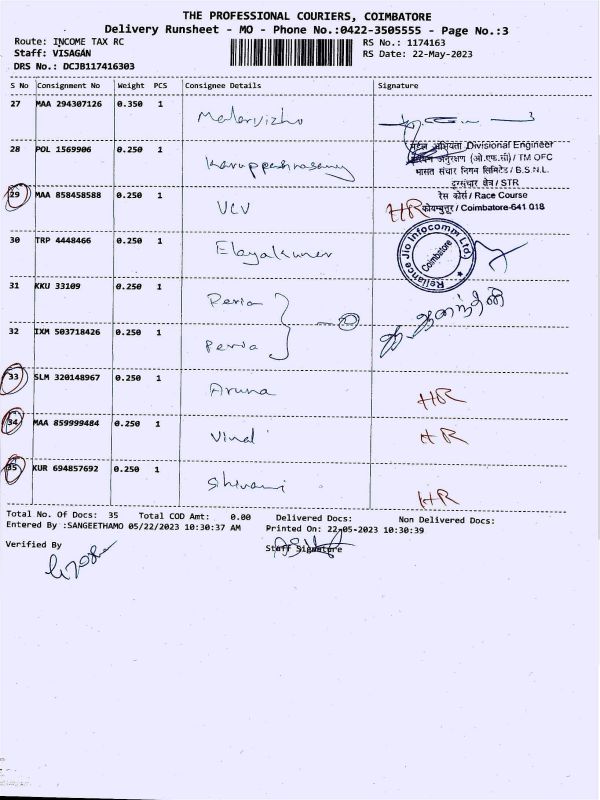 THE PROFESSIONAL COURIERS, COIMBATORE
Delivery Runsheet - MO - Phone No.:0422-3505555 - Page No.:3
Route: INCOME TAX RC RS No.: 1174163
Staff: VISAGAN RS Date: 22-May-2023
DRS No.: DCJB117416303
S No Consignment No Weight PCS Consignee Details Signature
27 MAA 294307126 0.350 1 Malarvizhi
28 POL 1569906 0.250 1 Karuppashwasamy
मंडल अभियंता Divisional Engineer
अनुरक्षण (ओ.एफ.सी) / TM OFC
भारत संचार निगम लिमिटेड / B.S.N.L.
दूरसंचार क्षेत्र / STR
रेस कोर्स / Race Course
कोयम्बुत्तूर / Coimbatore-641 018
29 MAA 858458588 0.250 1 VCV HR
30 TRP 4448466 0.250 1 Elayakumar
Reliance Jio Infocomm Ltd
Coimbatore
31 KKU 33109 0.250 1 Peria
32 IXM 503718426 0.250 1 Peria
33 SLM 320148967 0.250 1 Aruna HR
34 MAA 859999484 0.250 1 Vinal HR
35 KUR 694857692 0.250 1 Shivani HR
Total No. Of Docs: 35 Total COD Amt: 0.00 Delivered Docs: Non Delivered Docs:
Entered By :SANGEETHAMO 05/22/2023 10:30:37 AM Printed On: 22-05-2023 10:30:39
Verified By Staff Signature